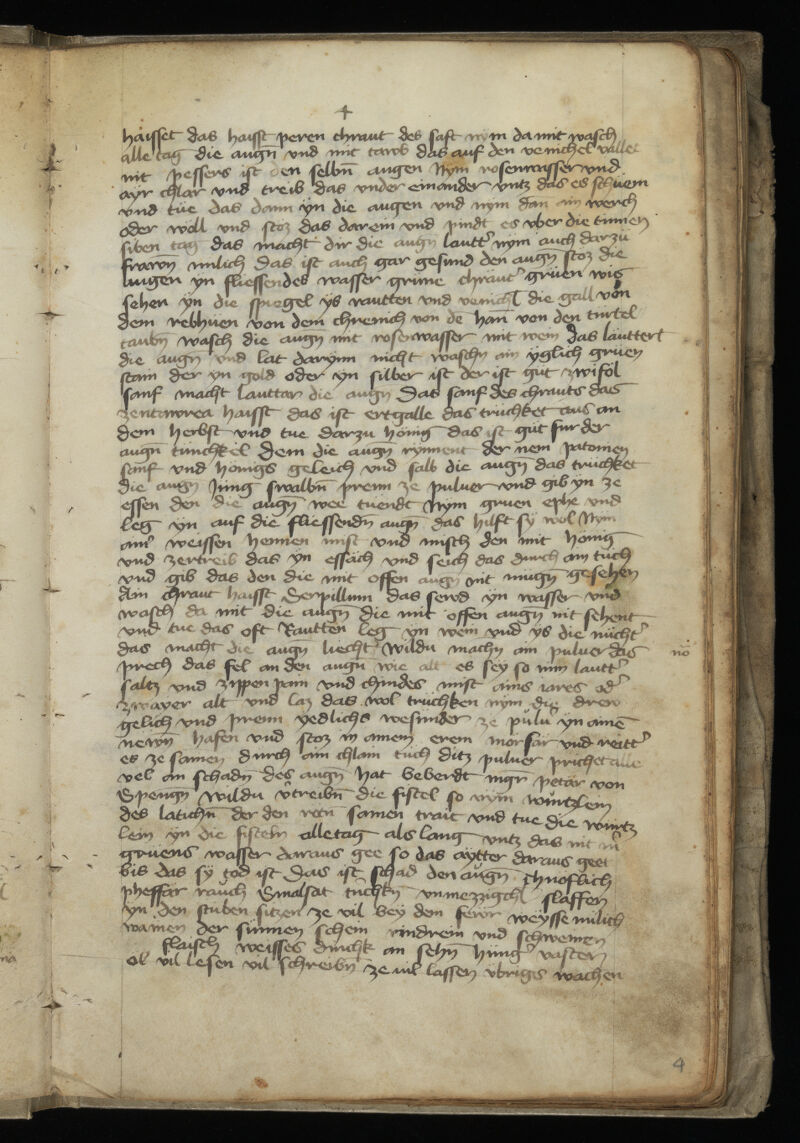 4
haisset das haisst peren chraut des saft nym da mit wasch
alle tag die augn̄ vnd mit tawb das auf den venichel vallet
nit pessers ist den selbn̄ augen Nym rosenwasser vnd
ayr chlar vnd treib das vnder einander vntz das es schüem
vnd tüe das dann yn die augen vnd nym dan ain werch
oder woll vnd stoz das darein vnd pindt es vber die tinnen
siben tag das macht dir die augn̄ lautt' nym auch darzu
frawn̄ milich Das ist auch gar gesund den augn̄ stoz die
augen yn fliessendes wasser grüne chraut' grüen wis
sehen yn die spiegel ys rautten vnd venichl die gall von
dem rebhuen von dem chreinich von de han̄ von den turtel
taubn̄ wasch die augn̄ mit rosenwasser mit wein das lauttert
die augn̄ vnd lat darynn nicht waschn̄ ain yglich grüen
stain der yn gold oder yn silber ist der ist güt zwifol
sanf macht lauttar die augn̄ Das sanf des chrauts das
zentawrea haisst das ist ertgalle das trüchket aus an
dem herbst vnd tue darzu hönig das ist güt fur der
augn̄ tunchkel Dem die augn̄ rynnent der nem patonien
sanf vnd hönigs geleich vnd salb die augn̄ das trüchket
die augn̄ Jung swalbn̄ prenn ze puluer vnd gib yn ze
essen den die augn̄ wee tuendt Nym gruen ephe vnd
leg yn auf die fliessendn̄ augn̄ das hilft sy wol Nym
ain' weissen hennen mist vnd misch den mit hönig
vnd zertreib das yn essäch vnd seich das durch ain tüch
vnd gib das den die mit offen augn̄ nit mugn̄ gesehen
Ain chraut haisst Serpillum das sewd yn wasser vnd
wasch da mit die augn̄ die mit offen augn̄ nit sehent
vnd tue das oft Rautten leg yn wein vnd ys die nücht'
das macht die augn̄ liecht Wildu machn̄ ain puluer das
no
prech das fel an den augn̄ wie alt es sey so nim lautt'
saltz vnd zippen pain vnd chindes mist ains iares od'
zwayer alt vnd laz das wol trüchken nym die drew
gelich vnd prenn yedlichs wesunder ze pulu' yn aine
newn̄ hafen vnd stoz in ainem erem morsar vnd reitt'
es ze samen durch ain chlain tuch ditz puluer prichet alle
vel an schadn̄ des augn̄ hat beberdt mgr̄ petär von
Spengn̄ Wildu v'treibn̄ die fistel so nym würtzlein
des latichn̄ der den rotn̄ samen trait vnd tue die wurtz
lein yn die fisteln alle tag als lang vntz das nit nur
gruens wasser daraus gee so das aytter daraus geet
bis das sy tod ist Das ist schad den augn̄ chnoflich
pheffar rauch Smalsat tüchkn̄ vnmezzigchl slaffen
yn den stuben sitzen ze vil bey dem fewr weysse milich
wainen der sünnen schein rindrein vnd schweinen
flaisch weisses dinchk an sehn̄ hung' vasten
öl vil lesen vil schreibn̄ ze vil lassen vbrigs wachen
4